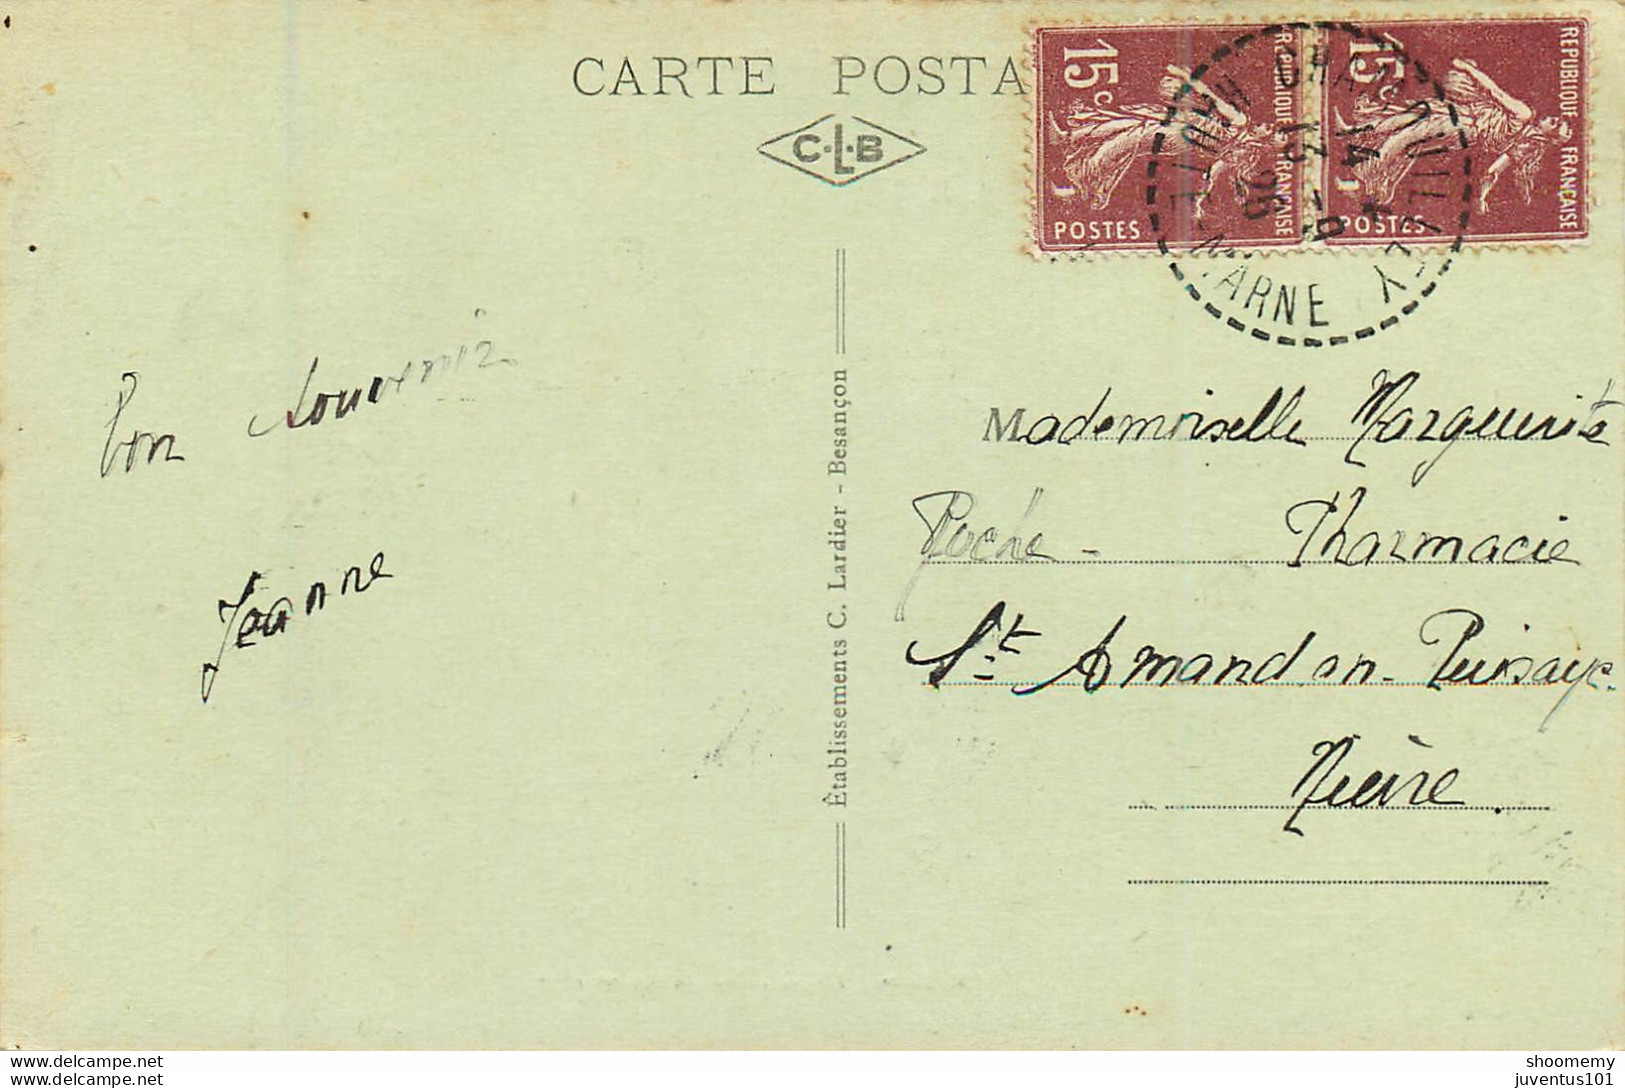 CARTE POSTA
C.L.B
15c
REPUBLIQUE FRANÇAISE
POSTES
15c
REPUBLIQUE FRANÇAISE
POSTES
14
13 -9
26
HAUTE-MARNE
Bon souvenir
Jeanne
Établissements C. Lardier - Besançon
Mademoiselle Marguerite
Roche - Pharmacie
St. Amand-en-Puisaye
Nièvre.
delcampe.net
delcampe.net
shoomemy
juventus101